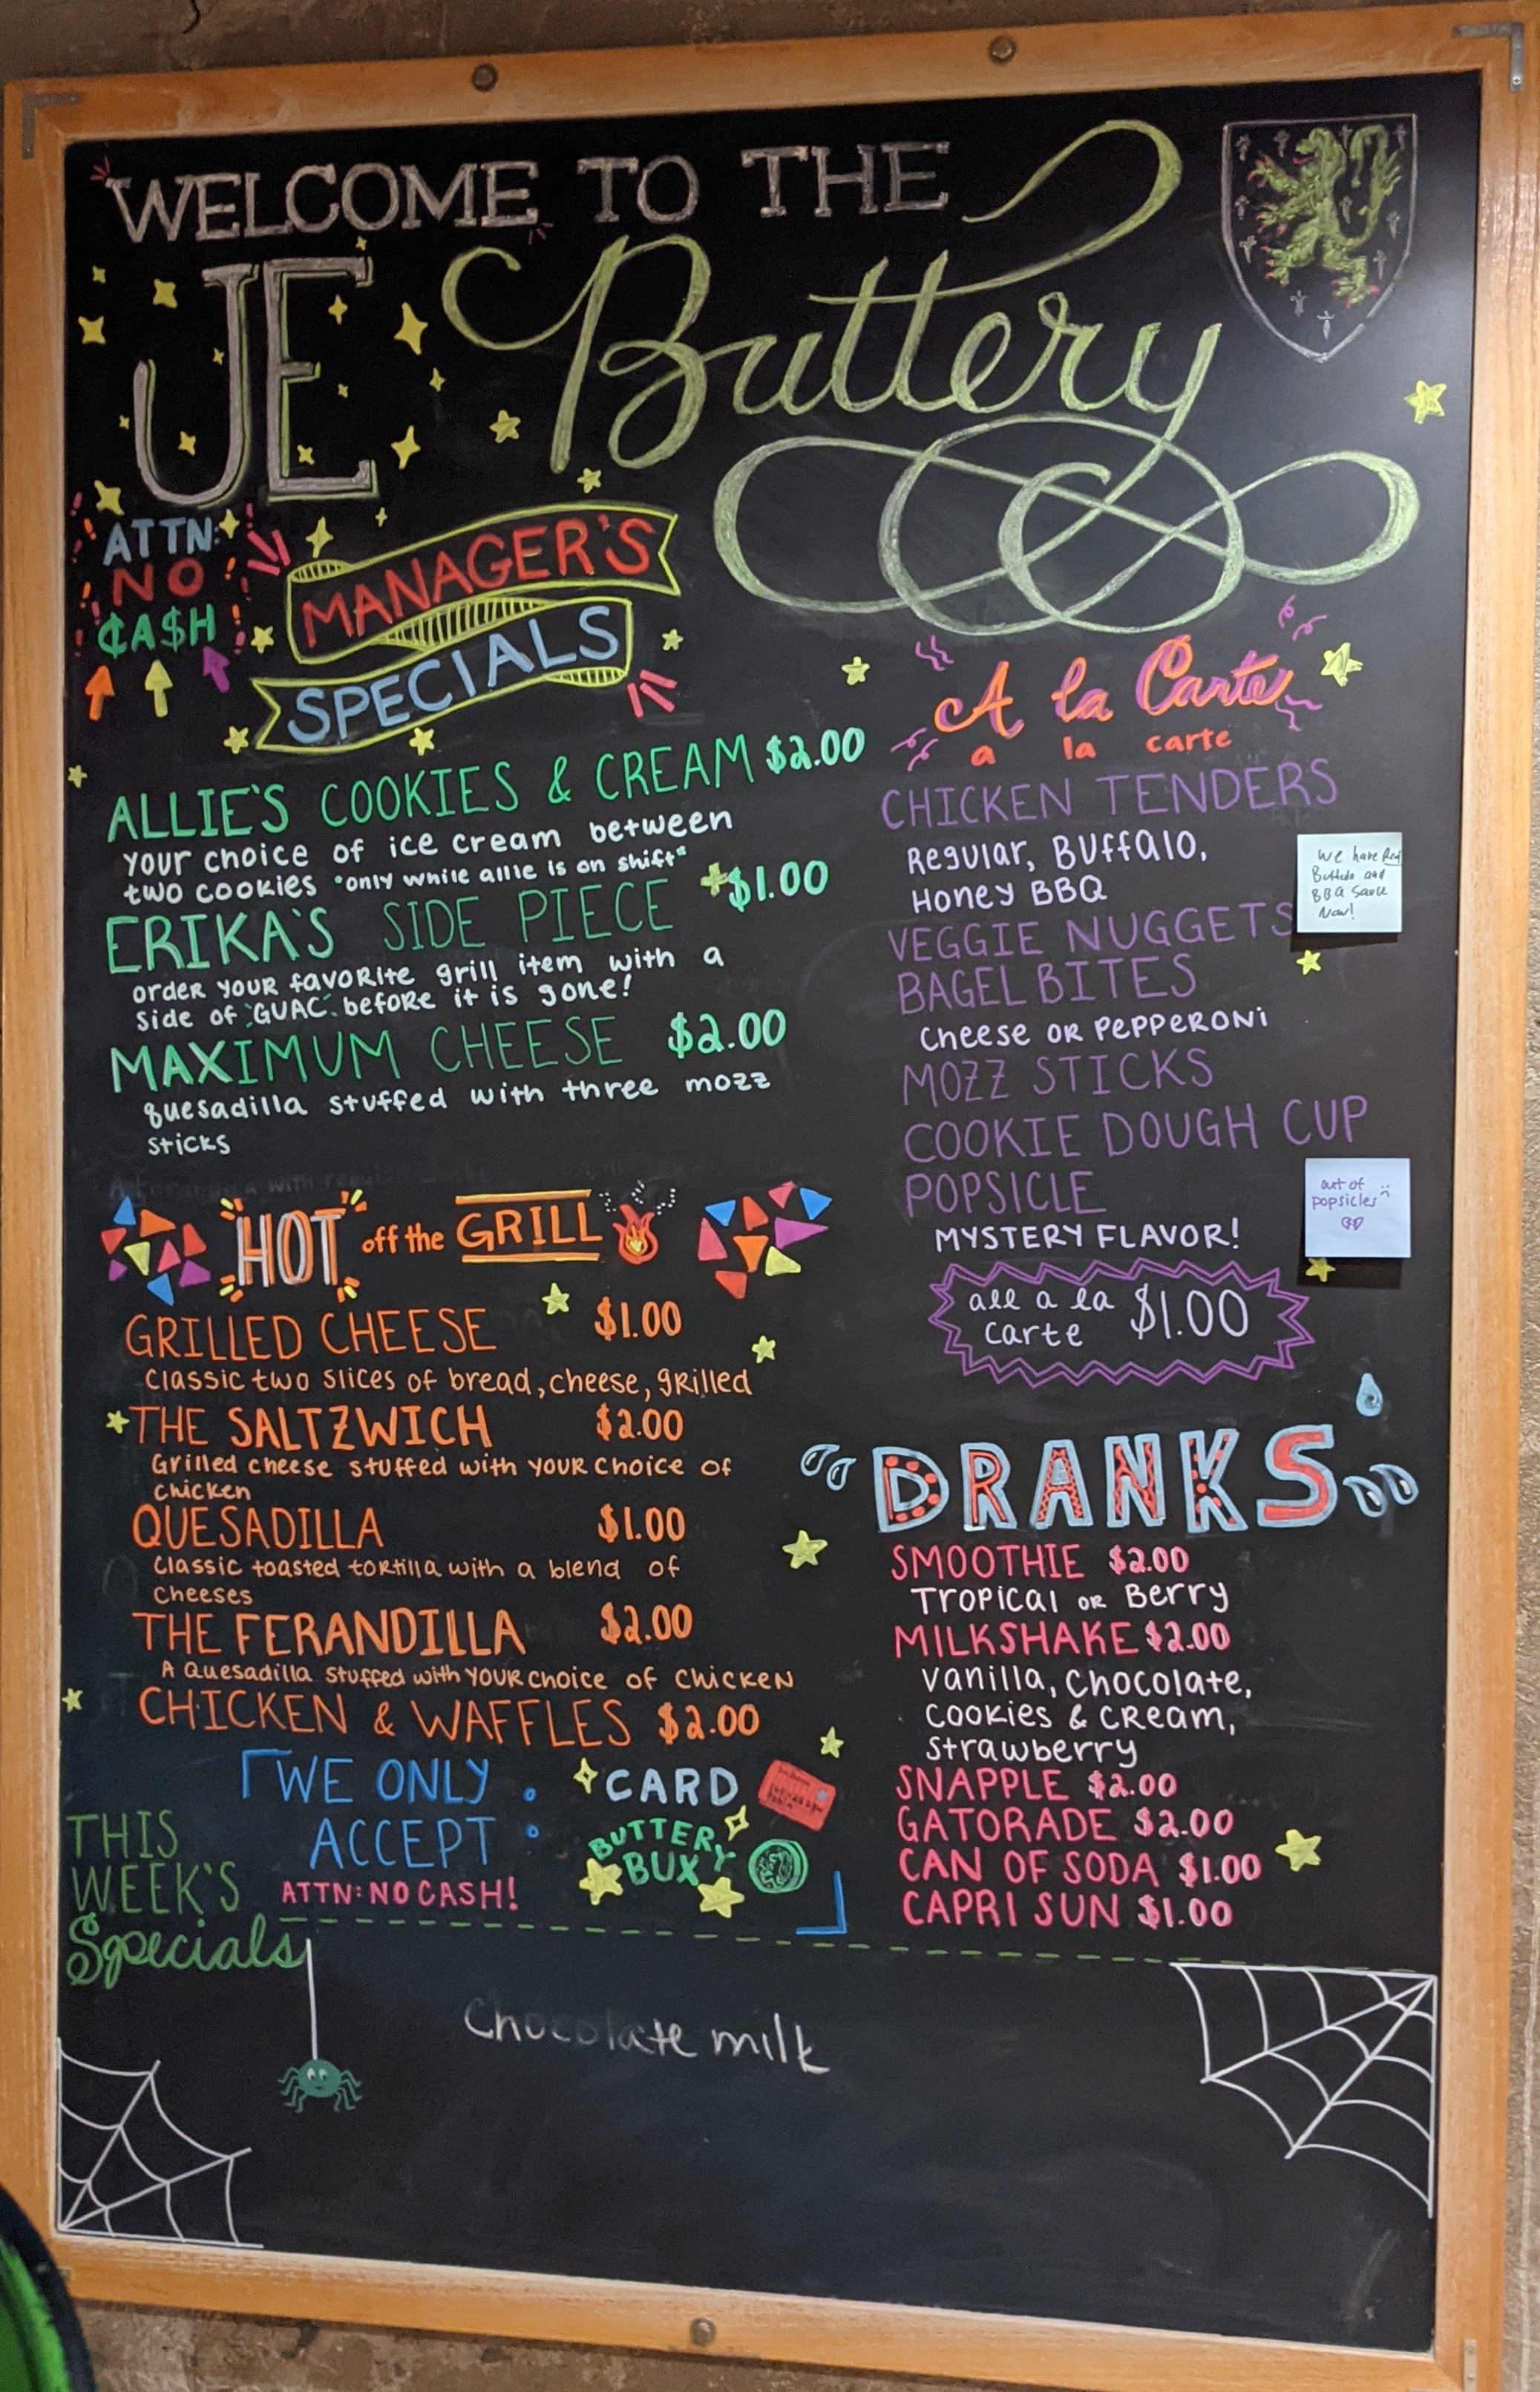 WELCOME TO THE
JE Buttery
ATTN:
NO
CA$H
MANAGER'S
SPECIALS
ALLIE'S COOKIES & CREAM $2.00
your choice of ice cream between
two cookies *only while allie is on shift*
ERIKA'S SIDE PIECE +$1.00
order your favorite grill item with a
side of GUAC before it is gone!
MAXIMUM CHEESE $2.00
quesadilla stuffed with three mozz
sticks
HOT off the GRILL
GRILLED CHEESE $1.00
classic two slices of bread, cheese, grilled
THE SALTZWICH $2.00
Grilled cheese stuffed with your choice of
chicken
QUESADILLA $1.00
Classic toasted tortilla with a blend of
cheeses
THE FERANDILLA $2.00
A Quesadilla stuffed with your choice of chicken
CHICKEN & WAFFLES $2.00
WE ONLY
ACCEPT :
ATTN: NO CASH!
CARD
BUTTERY
BUX
A la Carte
a la carte
CHICKEN TENDERS
Regular, Buffalo,
Honey BBQ
We have Red
Buffalo and
BBQ Sauce
Now!
VEGGIE NUGGETS
BAGEL BITES
Cheese or Pepperoni
MOZZ STICKS
COOKIE DOUGH CUP
POPSICLE
MYSTERY FLAVOR!
out of
popsicles
all a la
carte $1.00
DRANKS
SMOOTHIE $2.00
Tropical or Berry
MILKSHAKE $2.00
Vanilla, Chocolate,
Cookies & Cream,
Strawberry
SNAPPLE $2.00
GATORADE $2.00
CAN OF SODA $1.00
CAPRI SUN $1.00
THIS
WEEK'S
Specials
Chocolate milk